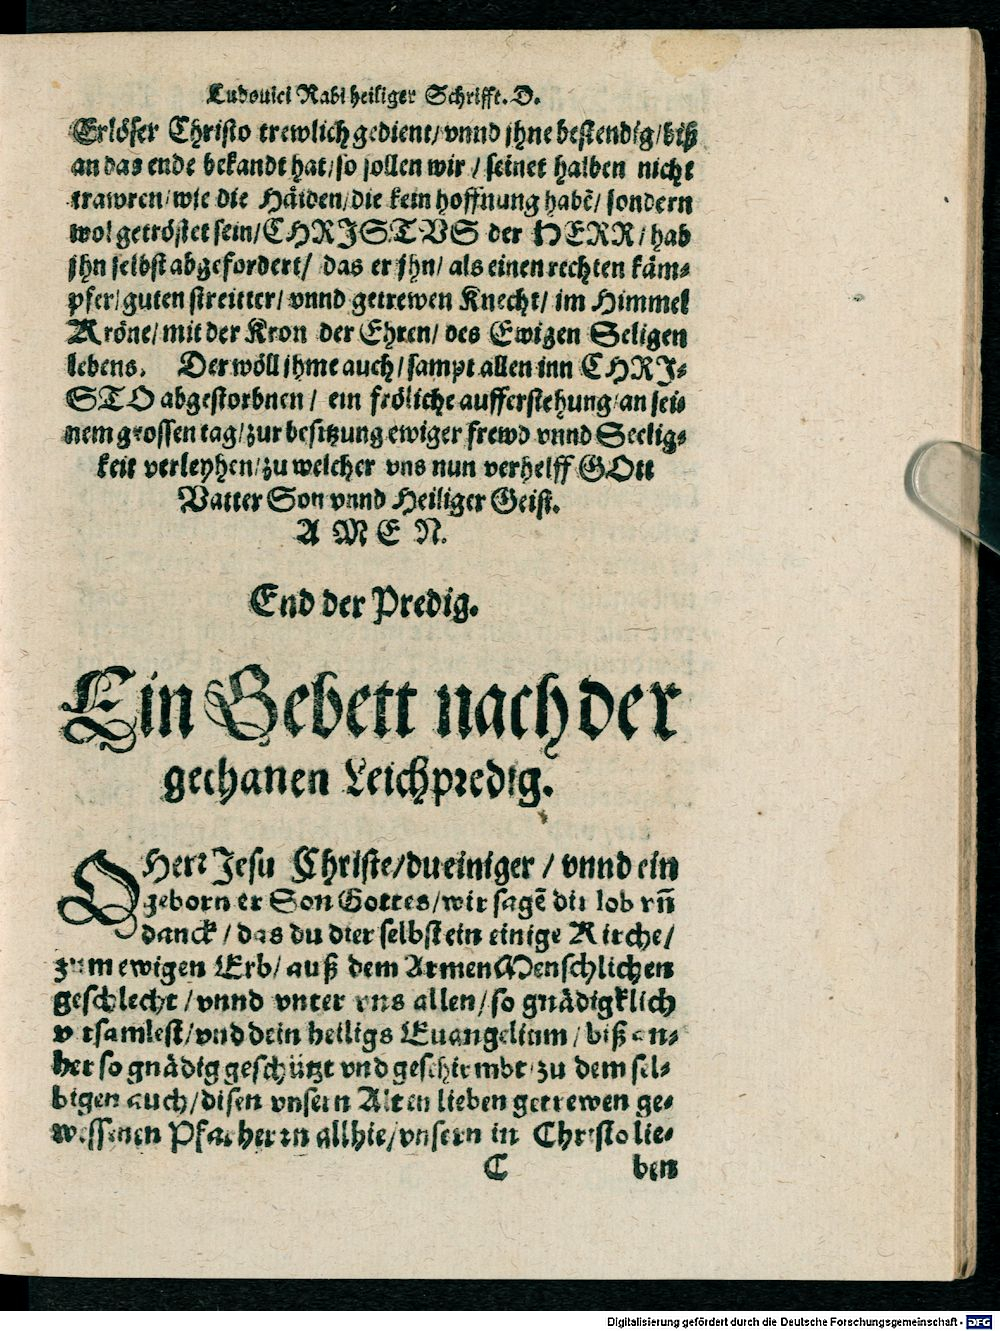 Ludouici Rabi heiliger Schrifft. D.
Erlöser Christo trewlich gedient/ vnnd jhne bestendig/ biß
an das ende bekandt hat/ so sollen wir / seinet halben nicht
trawren/ wie die Häiden/ die kein hoffnung habẽ/ sondern
wol getröstet sein/ CHRISTVS der HERR/ hab
jhn selbst abgefordert/ das er jhn/ als einen rechten käm-
pfer/ guten streitter/ vnnd getrewen Knecht/ im Himmel
Kröne/ mit der Kron der Ehren/ des Ewigen Seligen
lebens. Der wöll jhme auch/ sampt allen inn CHRI-
STO abgestorbnen/ ein fröliche aufferstehung/ an sei-
nem grossen tag/ zur besitzung ewiger frewd vnnd Seelig-
keit verleyhen/ zu welcher vns nun verhelff GOtt
Vatter Son vnnd Heiliger Geist.
A M E N.
End der Predig.
Ein Gebett nach der
gethanen Leichpredig.
O Herr Jesu Christe/ du einiger / vnnd ein
geborner Son Gottes/ wir sagẽ dir lob vñ
danck / das du dier selbst ein einige Kirche/
zum ewigen Erb/ auß dem Armen Menschlichen
geschlecht / vnnd vnter vns allen/ so gnädigklich
versamlest/ vnd dein heiligs Euangelium / biß an-
her so gnädig geschützt vnd geschirmbt/ zu dem sel-
bigen auch/ disen vnsern Alten lieben getrewen ge-
wessenen Pfarherrn allhie/ vnsern in Christo lie-
C ben
Digitalisierung gefördert durch die Deutsche Forschungsgemeinschaft - DFG